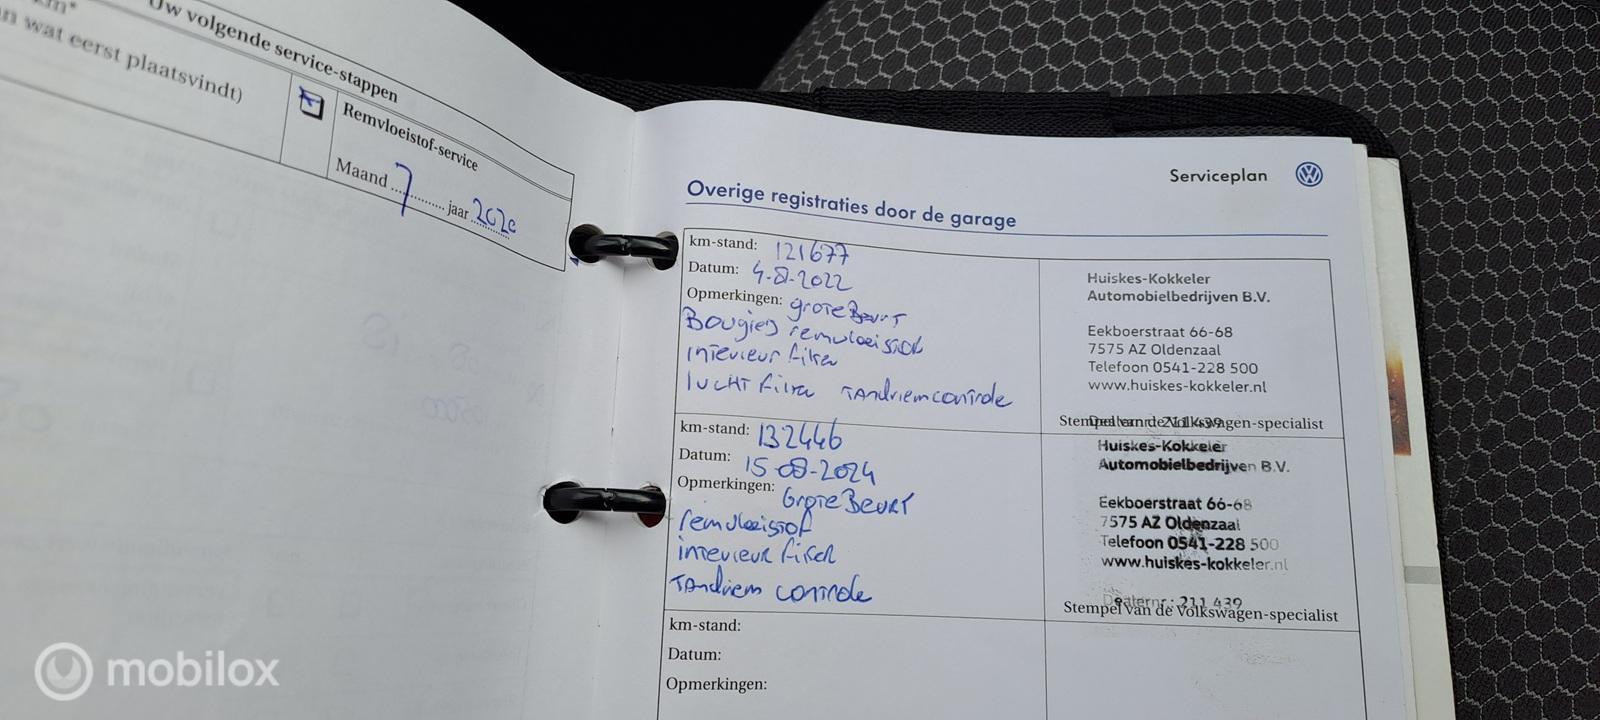 km*
n wat eerst plaatsvindt)
Uw volgende service-stappen
Remvloeistof-service
Maand 7 jaar 2020
Serviceplan
Overige registraties door de garage
km-stand: 121677
Datum: 4-8-2022
Opmerkingen: Grote Beurt
Bougies remvloeistof
interieur filter
lucht filter Tandriem controle
Huiskes-Kokkeler
Automobielbedrijven B.V.
Eekboerstraat 66-68
7575 AZ Oldenzaal
Telefoon 0541-228 500
www.huiskes-kokkeler.nl
Dealernr.: 211 439
Stempel van de Volkswagen-specialist
km-stand: 132446
Datum: 15-08-2024
Opmerkingen: Grote Beurt
remvloeistof
interieur filter
Tandriem controle
Huiskes-Kokkeler
Automobielbedrijven B.V.
Eekboerstraat 66-68
7575 AZ Oldenzaal
Telefoon 0541-228 500
www.huiskes-kokkeler.nl
Dealernr.: 211 439
Stempel van de Volkswagen-specialist
km-stand:
Datum:
Opmerkingen:
mobilox